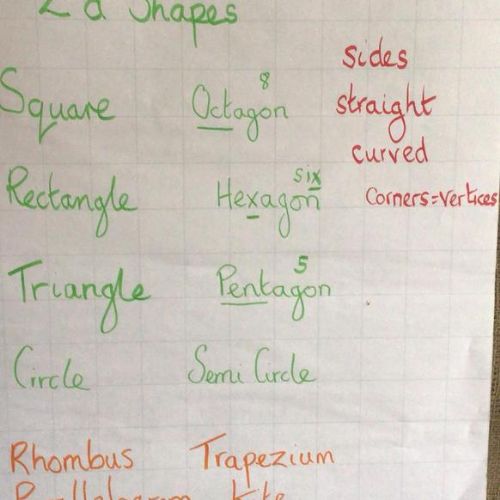 2d Shapes
sides
8
Square Octagon straight
curved
six
Rectangle Hexagon Corners=vertices
5
Triangle Pentagon
Circle Semi Circle
Rhombus Trapezium
Parallelogram kite